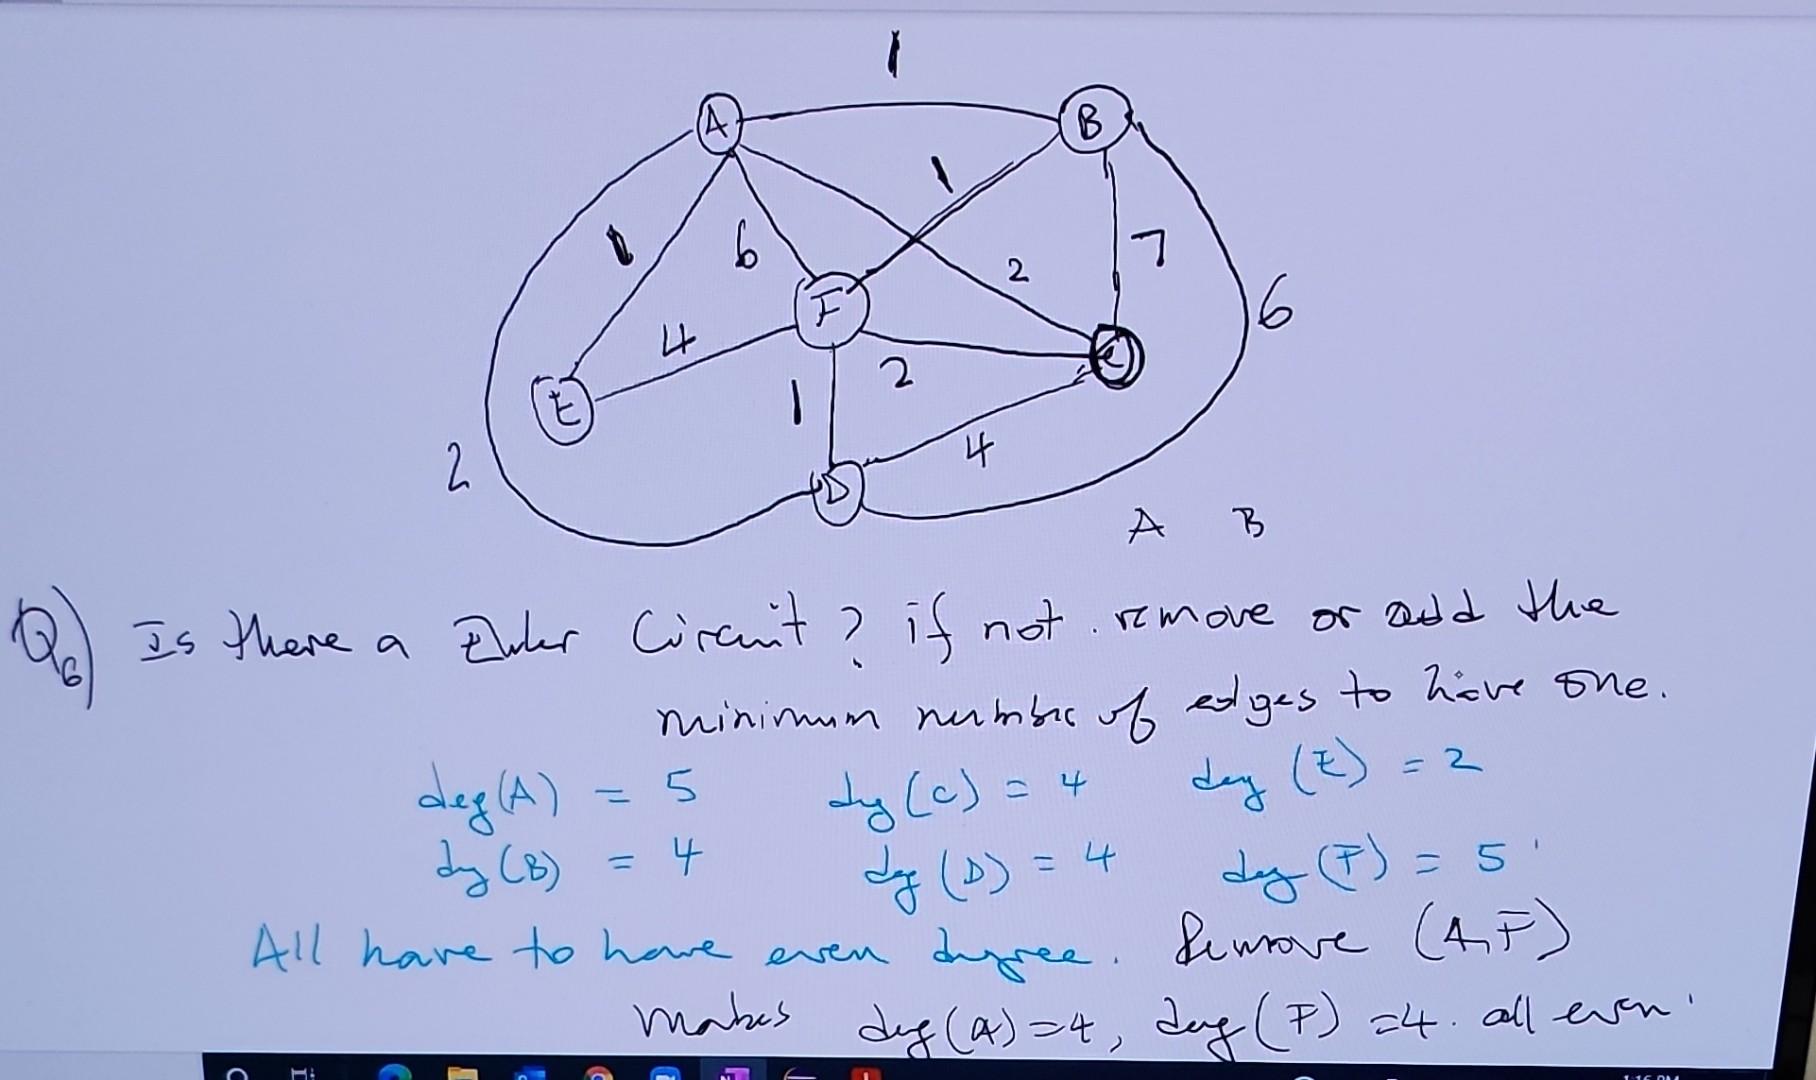 1
A
B
1
1
6
2
7
6
F
4
2
C
E
1
2
4
D
A B
Q6) Is there a Euler Circuit ? if not . remove or add the
minimum number of edges to have one.
deg(A) = 5 deg(C) = 4 deg(E) = 2
deg(B) = 4 deg(D) = 4 deg(F) = 5
All have to have even degree. Remove (A,F)
makes deg(A)=4, deg(F)=4. all even